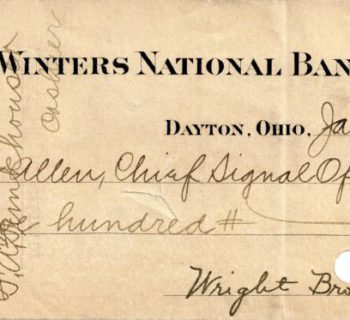 WINTERS NATIONAL BAN
DAYTON, OHIO, Ja
Allen, Chief Signal Of
hundred #
Wright Bro
Cashier